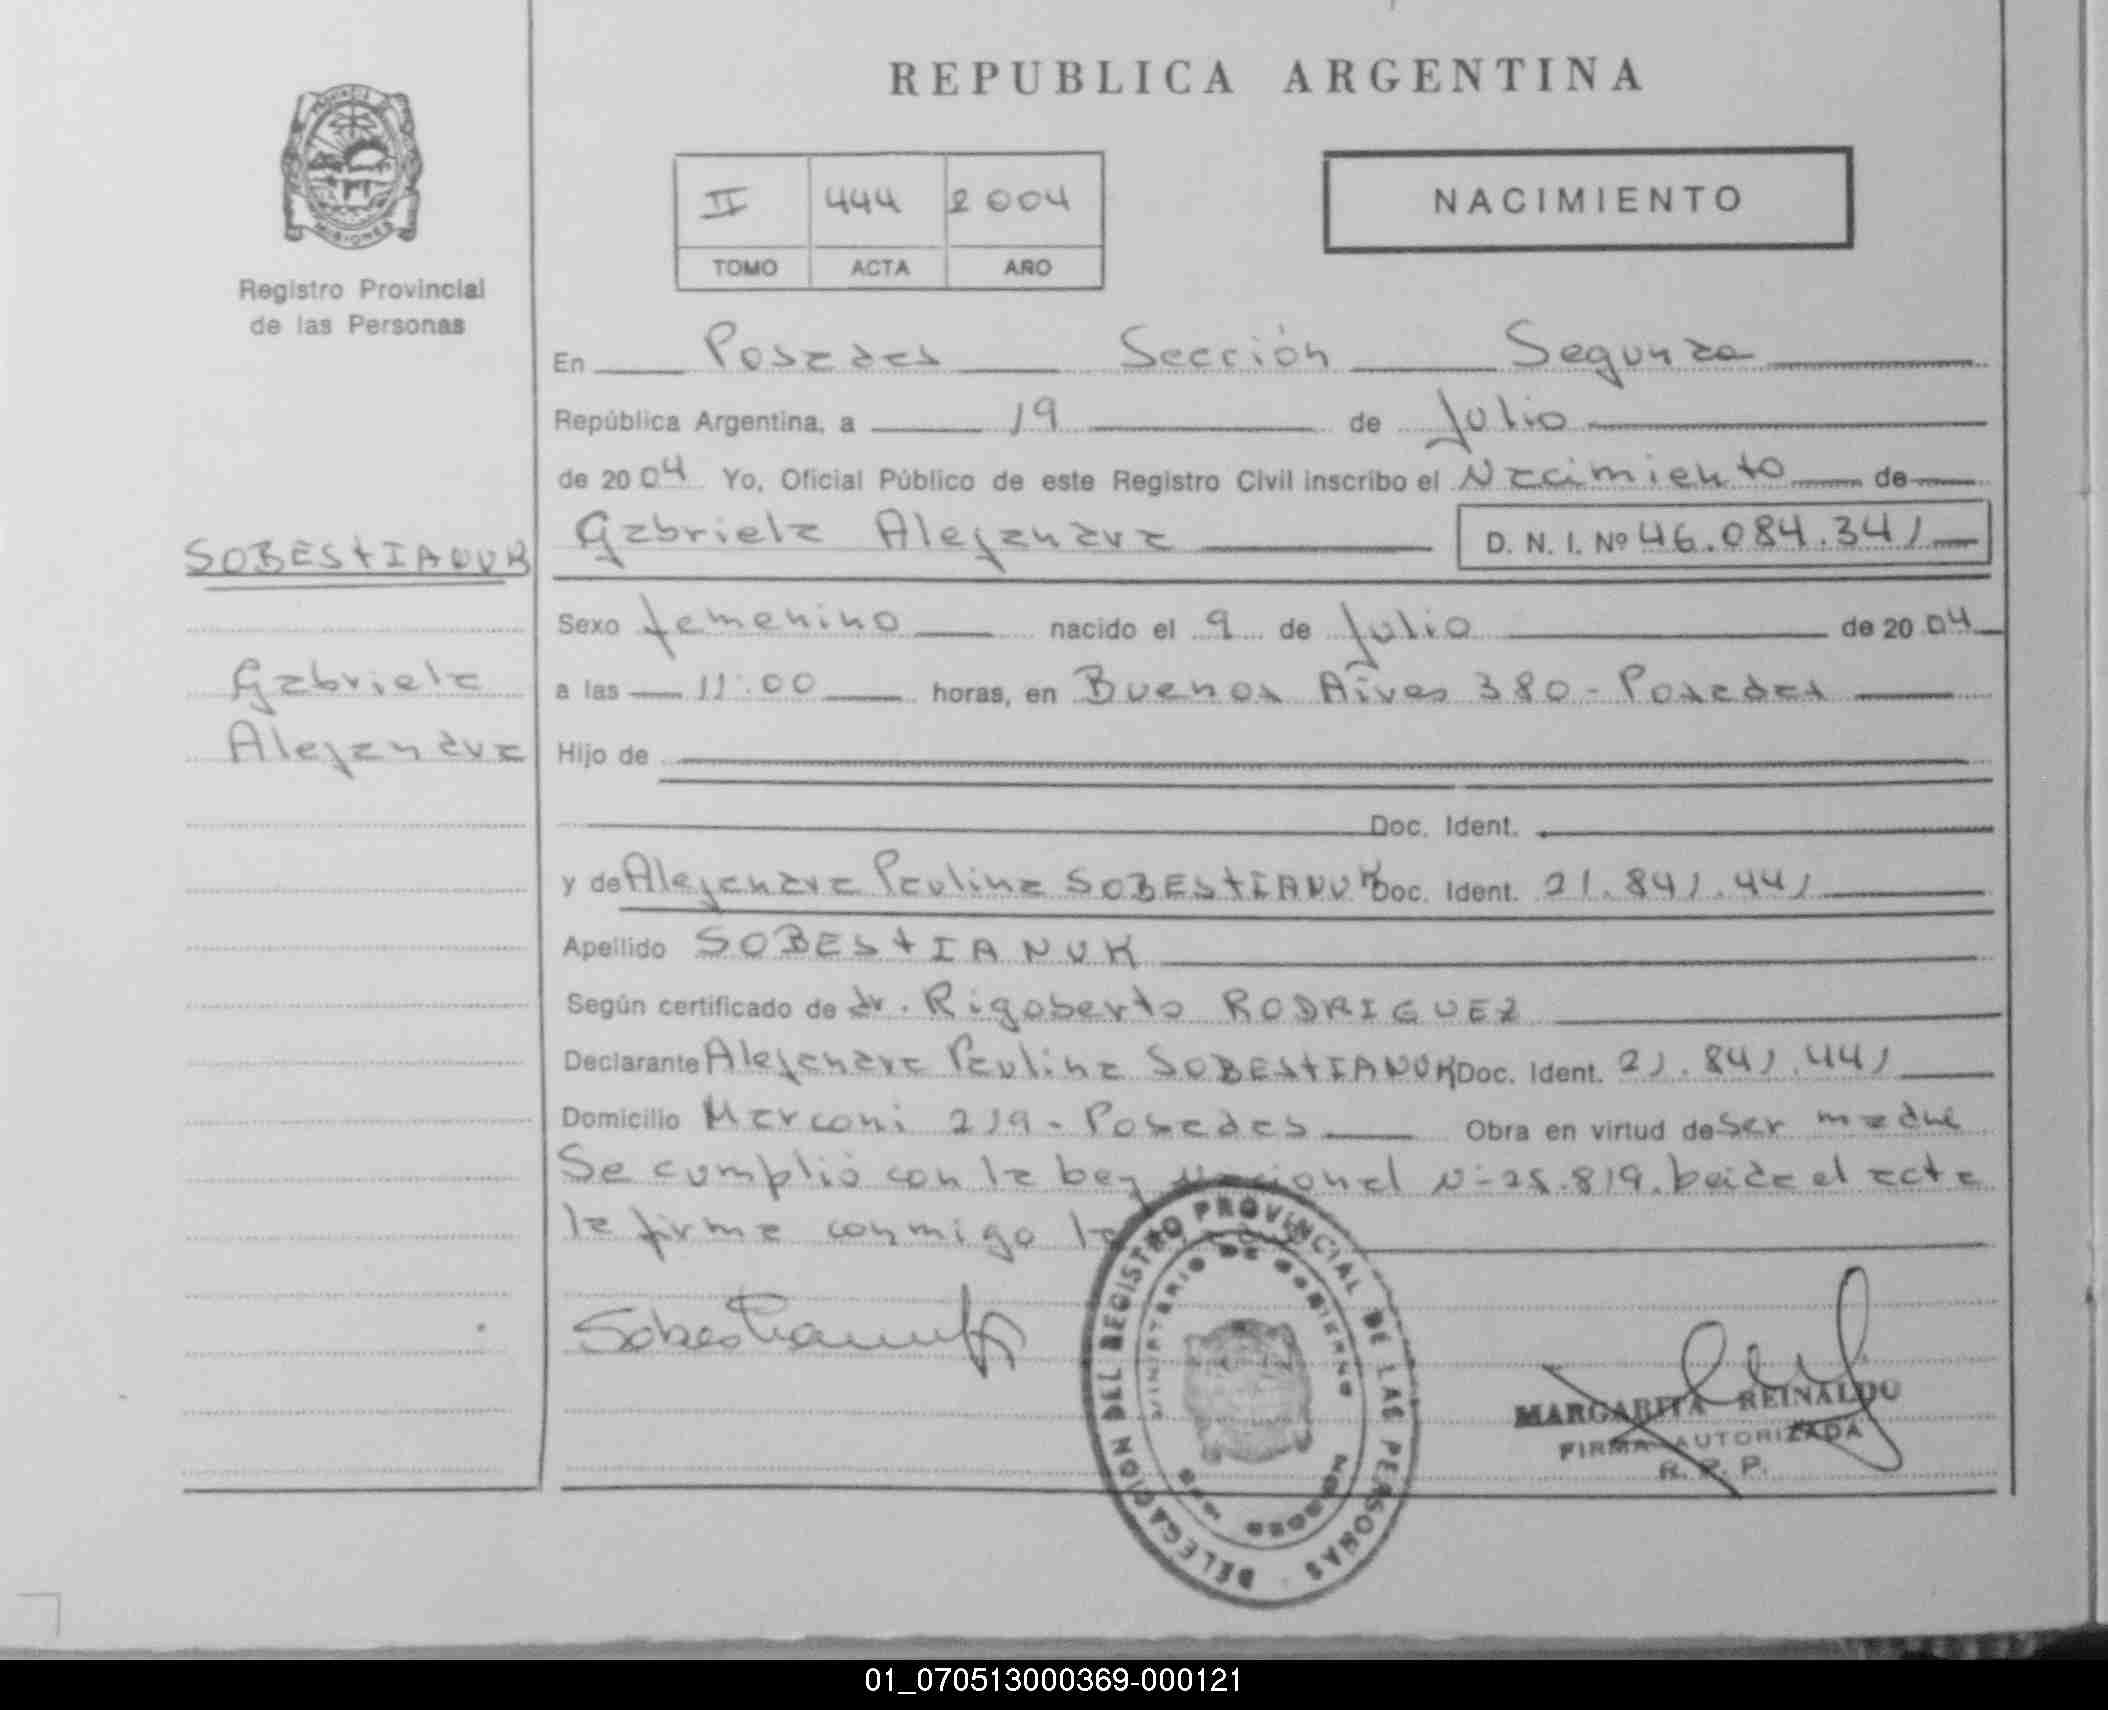 REPUBLICA ARGENTINA
MISIONES
Registro Provincial
de las Personas
II 444 2004
TOMO ACTA AÑO
NACIMIENTO
En Posadas Sección Segunda
República Argentina, a 19 de Julio
de 2004 Yo, Oficial Público de este Registro Civil inscribo el Nacimiento de
SOBESTIANUK
Gabriela Alejandra D. N. I. Nº 46.084.341
Sexo femenino nacido el 9 de Julio de 2004
Gabriela
a las 11:00 horas, en Buenos Aires 380 - Posadas
Alejandra
Hijo de
Doc. Ident.
y de Alejandra Paulina SOBESTIANUK Doc. Ident. 21.841.441
Apellido SOBESTIANUK
Según certificado de dr. Rigoberto RODRIGUEZ
Declarante Alejandra Paulina SOBESTIANUK Doc. Ident. 21.841.441
Domicilio Marconi 219 - Posadas Obra en virtud de ser madre
Se cumplió con la Ley Nacional Nº 25.819. Leida el acta
la firma conmigo la
Sobestianuk
DELEGACION DEL REGISTRO PROVINCIAL DE LAS PERSONAS
MINISTERIO DE GOBIERNO
MARGARITA REINALDO
FIRMA AUTORIZADA
R. P. P.
01_070513000369-000121